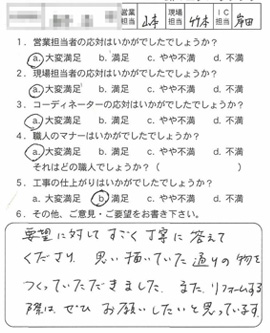 営業担当 山本 現場担当 竹本 IC担当
1．営業担当者の応対はいかがでしたでしょうか？
a. 大変満足 b. 満足 c. やや不満 d. 不満
2．現場担当者の応対はいかがでしたでしょうか？
a. 大変満足 b. 満足 c. やや不満 d. 不満
3．コーディネーターの応対はいかがでしたでしょうか？
a. 大変満足 b. 満足 c. やや不満 d. 不満
4．職人のマナーはいかがでしたでしょうか？
a. 大変満足 b. 満足 c. やや不満 d. 不満
それはどの職人でしょうか？（ ）
5．工事の仕上がりはいかがでしたでしょうか？
a. 大変満足 b. 満足 c. やや不満 d. 不満
6．その他、ご意見・ご要望をお書き下さい。
要望に対してすごく丁寧に答えて
くださり、思い描いていた通りの物を
つくっていただきました。また、リフォームする
際は、ぜひお願いしたいと思っています。